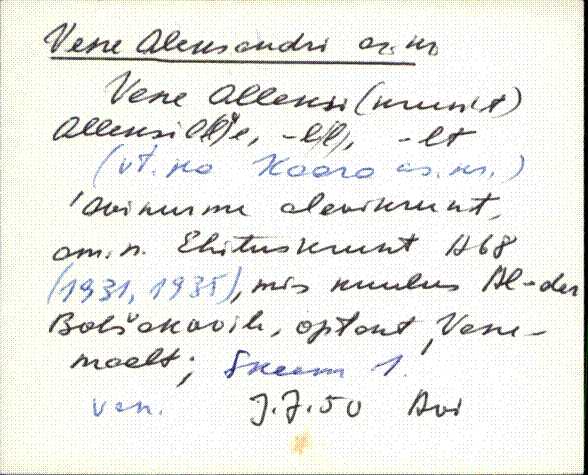 Vene Aleksandri as.kr.
Vene Alleksi (krunt)
Alleksil(l)e, -l(l), -lt
(vt. ka Kooro as.kr.)
'avinurme alevikrunt,
am.n. Ehituskrunt A68
(1931, 1935), mis kuulus Al-der
Bolšakovile, optant Vene-
maalt; Skeem 1.
ven. J.J.50 Avi